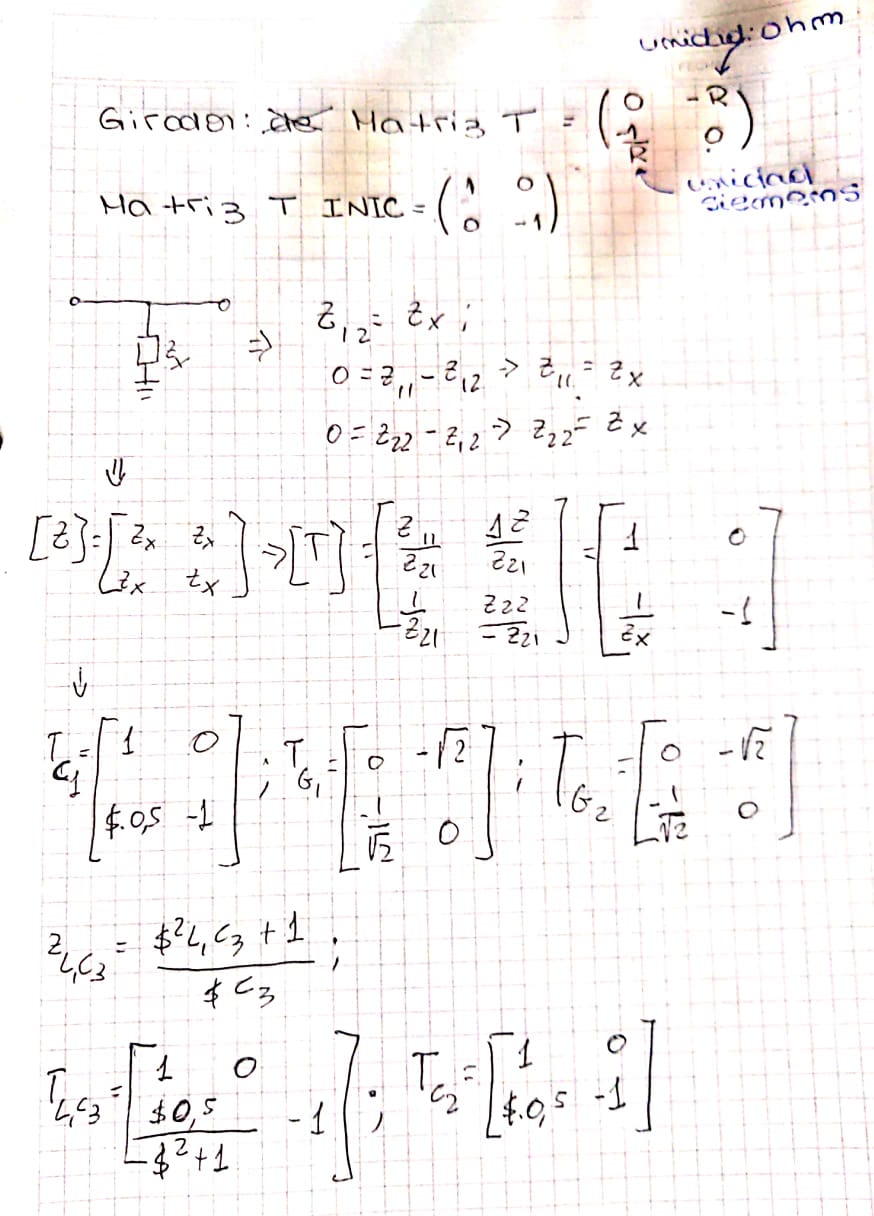 unidad: Ohm
Girador: de Matriz T = ( 0 -R
-1/R 0 )
unidad
siemens
Matriz T INIC = ( 1 0
0 -1 )
Zx ⇒ Z12 = Zx ;
0 = Z11 - Z12 → Z11 = Zx
0 = Z22 - Z12 → Z22 = Zx
⇓
[Z] = [ Zx Zx
Zx Zx ] ⇒ [T] = [ Z11/Z21 ΔZ/Z21
1/Z21 Z22/-Z21 ] = [ 1 0
1/Zx -1 ]
↓
TC1 = [ 1 0
$.0,5 -1 ] ; TG1 = [ 0 -√2
-1/√2 0 ] ; TG2 = [ 0 -√2
-1/√2 0 ]
ZL1C3 = ($²L1C3 + 1)/($C3) ;
TL1C3 = [ 1 0
$0,5/($²+1) -1 ] ; TC2 = [ 1 0
$.0,5 -1 ]